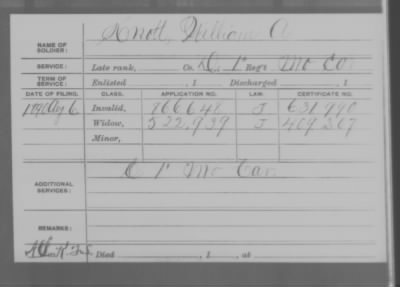 NAME OF SOLDIER: Knott, William A
SERVICE: Late rank, Co. C, 1' Reg't Mo Cav
TERM OF SERVICE: Enlisted , 1 Discharged , 1
DATE OF FILING. CLASS. APPLICATION NO. LAW. CERTIFICATE NO.
1890 Aug 6 Invalid, 866648 J 631,990
Widow, 522,939 J 409,367
Minor,
ADDITIONAL SERVICES: C 1' Mo Cav
REMARKS:
Died , 1 , at